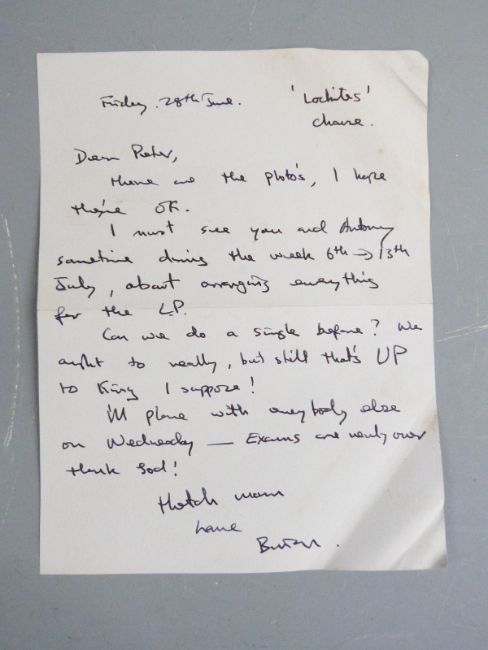 Friday. 28th June. 'Lockites'
Dear Peter,
there are the photo's, I hope
they're OK.
I must see you and Antony
sometime during the week 6th → 13th
July, about arranging everything
for the LP.
Can we do a single before? We
ought to really, but still that's UP
to King I suppose!
I'll phone with everybody else
on Wednesday — Exams are nearly over
thank God!
much
love